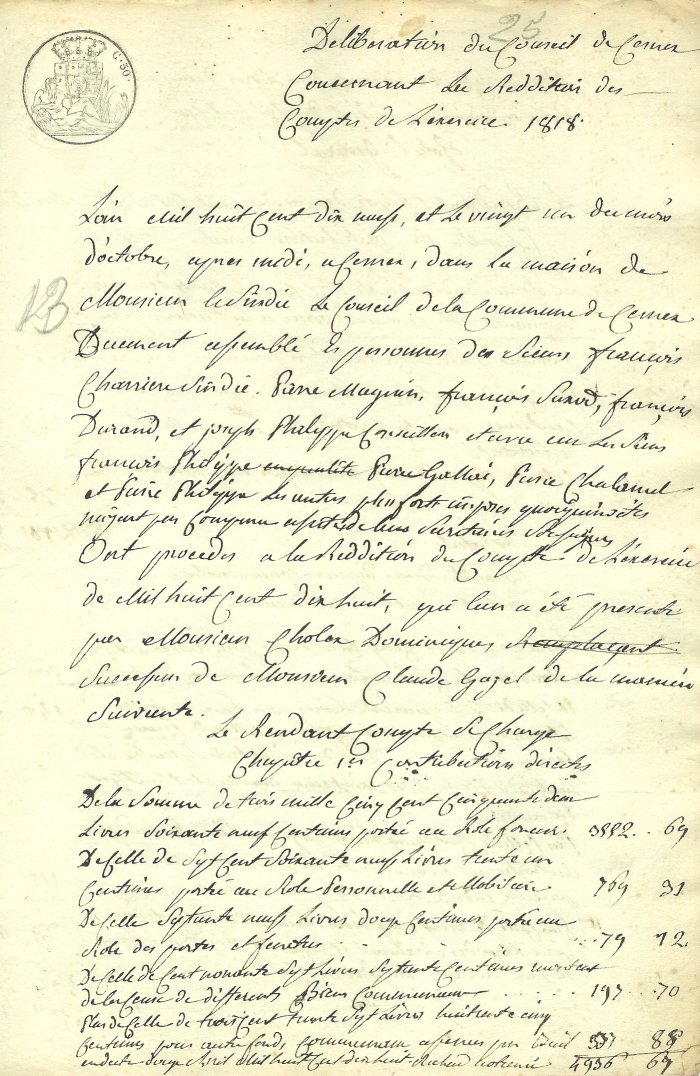 25
C. 50.
Deliberation du Conseil de Cernex
Concernant La Reddition des
Comptes de L'exercice 1818.
L'an Mil huit Cent dix neuf, et Le vingt un du mois
d'octobre, apres midi, a Cernex, dans La maison de
Monsieur le Sindic Le Conseil de la Commune de Cernex
Duement assemblé Es personnes des Sieurs françois
Charriere Sindic. Pierre Magnin, françois Sunod, françois
Durand, et joseph Philippe Conseillers et avec eux Les Sieurs
françois Philippe Pierre Gallai, Pierre Chalamel
et Pierre Philippe Les autres plus forts imposés quoiqu'invités
n'ayant pas Comparu assistés de leur Secrétaire Soussigné
Ont procédés a la Reddition du Compte de L'exercice
de Mil huit Cent dix huit, qui leur a été presenté
par Monsieur Cholex Dominiques Remplaçant
Successeur de Monsieur Claude Gazel de la maniere
Suivante.
Le Rendant Compte se Charge
Chapitre 1er Contributions directes
De la Somme de trois mille Cinq Cent Cinquante deux
Livres Soixante neuf Centimes porté au Role foncier. 3552.. 69
De Celle de Sept Cent Soixante neuf Livres trente un
Centimes porté au Role Personnelle et Mobiliaire 769 31
De Celle Septante neuf Livres douze Centimes porté au
Role des portes et fenetres ... 79 12
De Celle de Cent nonante Sept Livres Septante Centimes montant
de la Cense de differents Biens Communaux ... 197 .. 70
Plus de Celle de trois Cent trente Sept Livres huitante cinq
Centimes pour autre fonds Communaux affermés par bail 337 88
en date douze Avril Mil huit Cent dix huit. notaire 4936 67
12